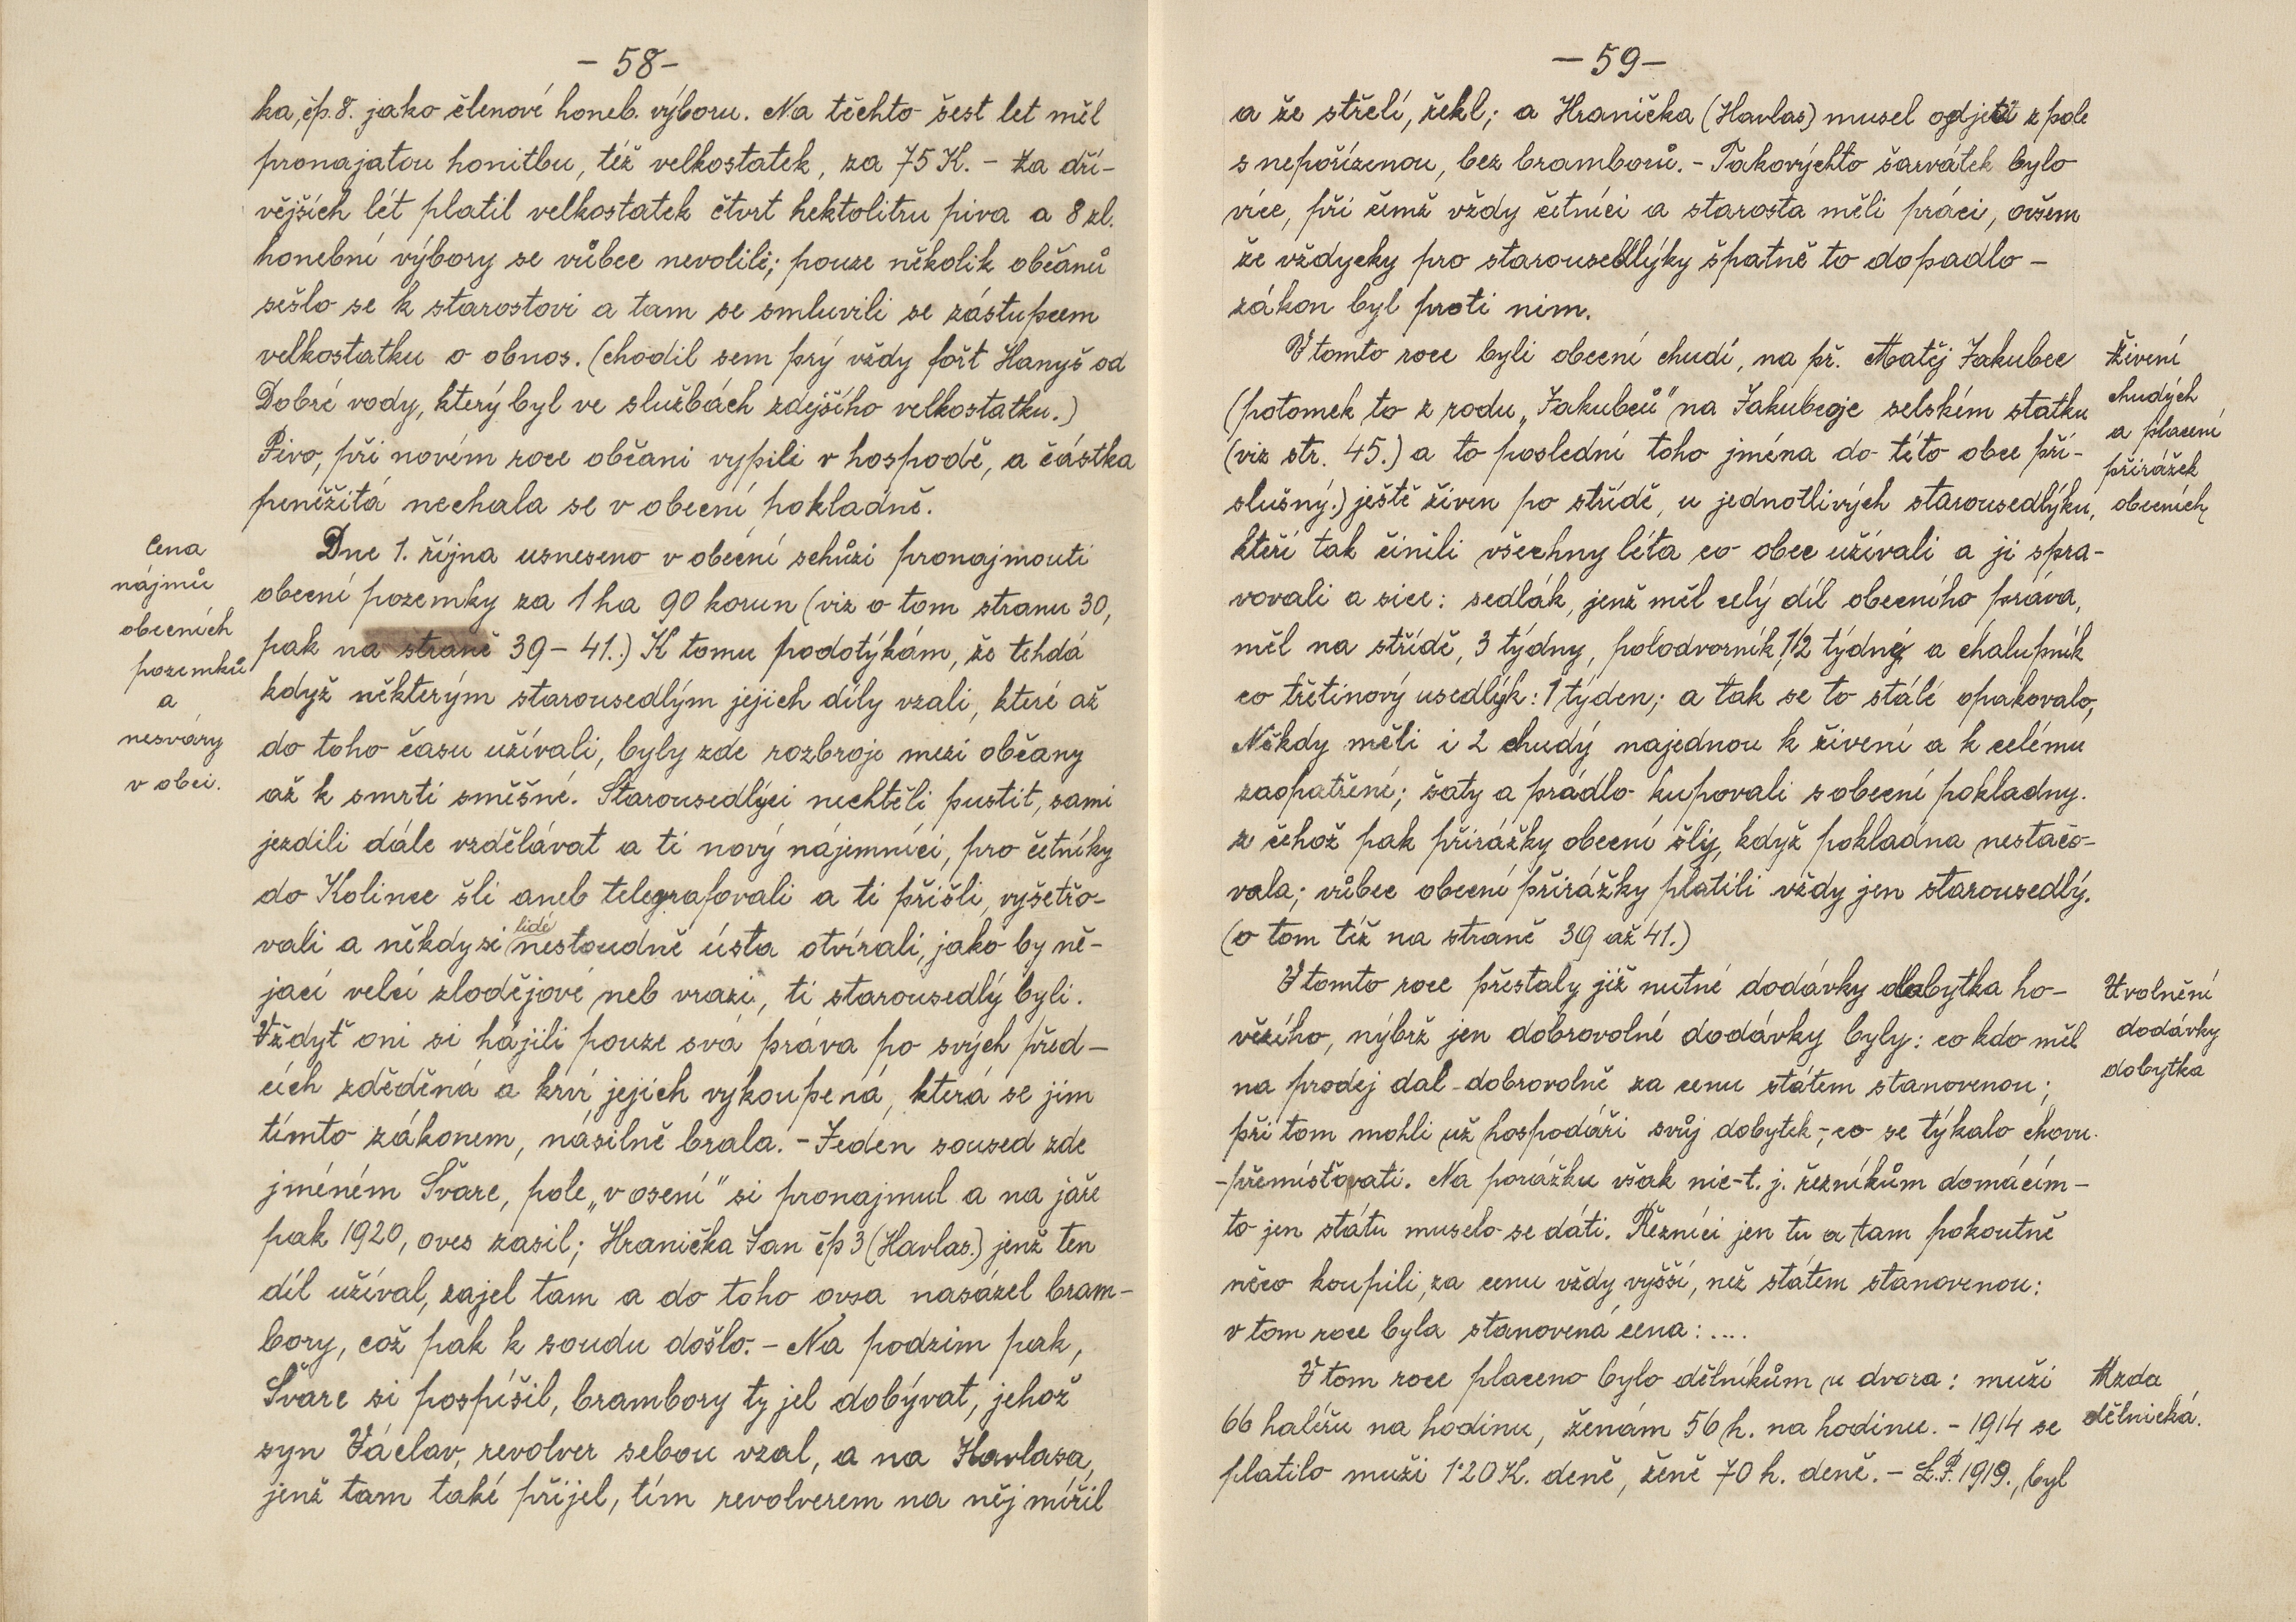 - 58 -
ka, čp. 8. jako členové honeb. výboru. Na těchto šest let měl
pronajatou honitbu, též velkostatek, za 75 K. - Za dří-
vějších lét platil velkostatek čtvrt hektolitru piva a 8 zl.
honební výbory se vůbec nevolili; pouze několik občanů
sešlo se k starostovi a tam se smluvili se zástupcem
velkostatku o obnos. (chodil sem prý vždy fořt Hanyš od
Dobré vody, který byl ve službách zdejšího velkostatku.)
Pivo, při novém roce občani vypili v hospodě, a částka
peněžitá nechala se v obecní pokladně.
Cena
nájmů
obecních
pozemků
a
nesváry
v obci.
Dne 1. října usneseno v obecní schůzi pronajmouti
obecní pozemky za 1 ha 90 korun (viz o tom stranu 30,
pak na straně 39 - 41.) K tomu podotýkám, že tehdá
když některým starousedlým jejich díly vzali, které až
do toho času užívali, byly zde rozbroje mezi občany
až k smrti směšné. Starousedlýci nechtěli pustit, sami
jezdili dále vzdělávat a ti nový nájemníci, pro četníky
do Kolince šli aneb telegrafovali a ti přišli, vyšetřo-
vali a někdy si lidé nestoudně ústa otvírali, jako by ně-
jací velcí zlodějové neb vrazi, ti starousedlý byli.
Vždyť oni si hájili pouze svá práva po svých před-
cích zděděná a krví jejich vykoupená, která se jim
tímto zákonem, násilně brala. - Jeden soused zde
jméném Švarc, pole „v osení" si pronajmul a na jaře
pak 1920, oves zasil; Hranička Jan čp 3 (Havlas.) jenž ten
díl užíval, zajel tam a do toho ovsa nasázel bram-
bory, což pak k soudu došlo. - Na podzim pak,
Švarc si pospíšil, brambory ty jel dobývat, jehož
syn Václav, revolver sebou vzal, a na Havlasa,
jenž tam také přijel, tím revolverem na něj mířil
- 59 -
a že střelí, řekl; a Hranička (Havlas) musel odjeti z pole
s nepořízenou, bez bramborů. - Takovýchto šarvátek bylo
více, při čemž vždy četníci a starosta měli práci, ovšem
že vždycky pro starousedlýky špatně to dopadlo -
zákon byl proti nim.
V tomto roce byli obecní chudí, na př. Matěj Jakubec
(potomek to z rodu „Jakubců" na Jakubcoje selském statku
(viz str. 45.) a to poslední toho jména do této obce pří-
slušný.) ještě živen po střídě, u jednotlivých starousedlýku,
kteří tak činili všechny léta co obec užívali a ji spra-
vovali a sice: sedlák, jenž měl celý díl obecního práva,
měl na střídě, 3 týdny, polodvorník, 1/2 týdný a chalupník
co třetinový usedlýk: 1 týden; a tak se to stálé opakovalo,
Někdy měli i 2 chudý najednou k živení a k celému
zaopatření; šaty a prádlo kupovali s obecní pokladny.
z čehož pak přirážky obecní šly, když pokladna nestačo-
vala; vůbec obecní přirážky platili vždy jen starousedlý.
(o tom též na straně 39 až 41.)
Živení
chudých
a placení
přirážek
obecních
V tomto roce přestaly již nutné dodávky dobytka ho-
vězího, nýbrž jen dobrovolné dodávky byly: co kdo měl
na prodej dal dobrovolně za cenu státem stanovenou;
při tom mohli už hospodáři svůj dobytek, - co se týkalo chovu.
- přemísťovati. Na porážku však nic - t. j. řezníkům domácím -
to jen státu muselo se dáti. Řezníci jen tu a tam pokoutně
něco koupili, za cenu vždy vyšší, než státem stanovenou:
v tom roce byla stanovená cena: ....
Uvolnění
dodávky
dobytka
V tom roce placeno bylo dělníkům u dvora: muži
66 haléřu na hodinu, ženám 56 h. na hodinu. - 1914 se
platilo muži 1·20 K. deně, ženě 70 h. deně. - L.P. 1919., byl
Mzda
dělnická.